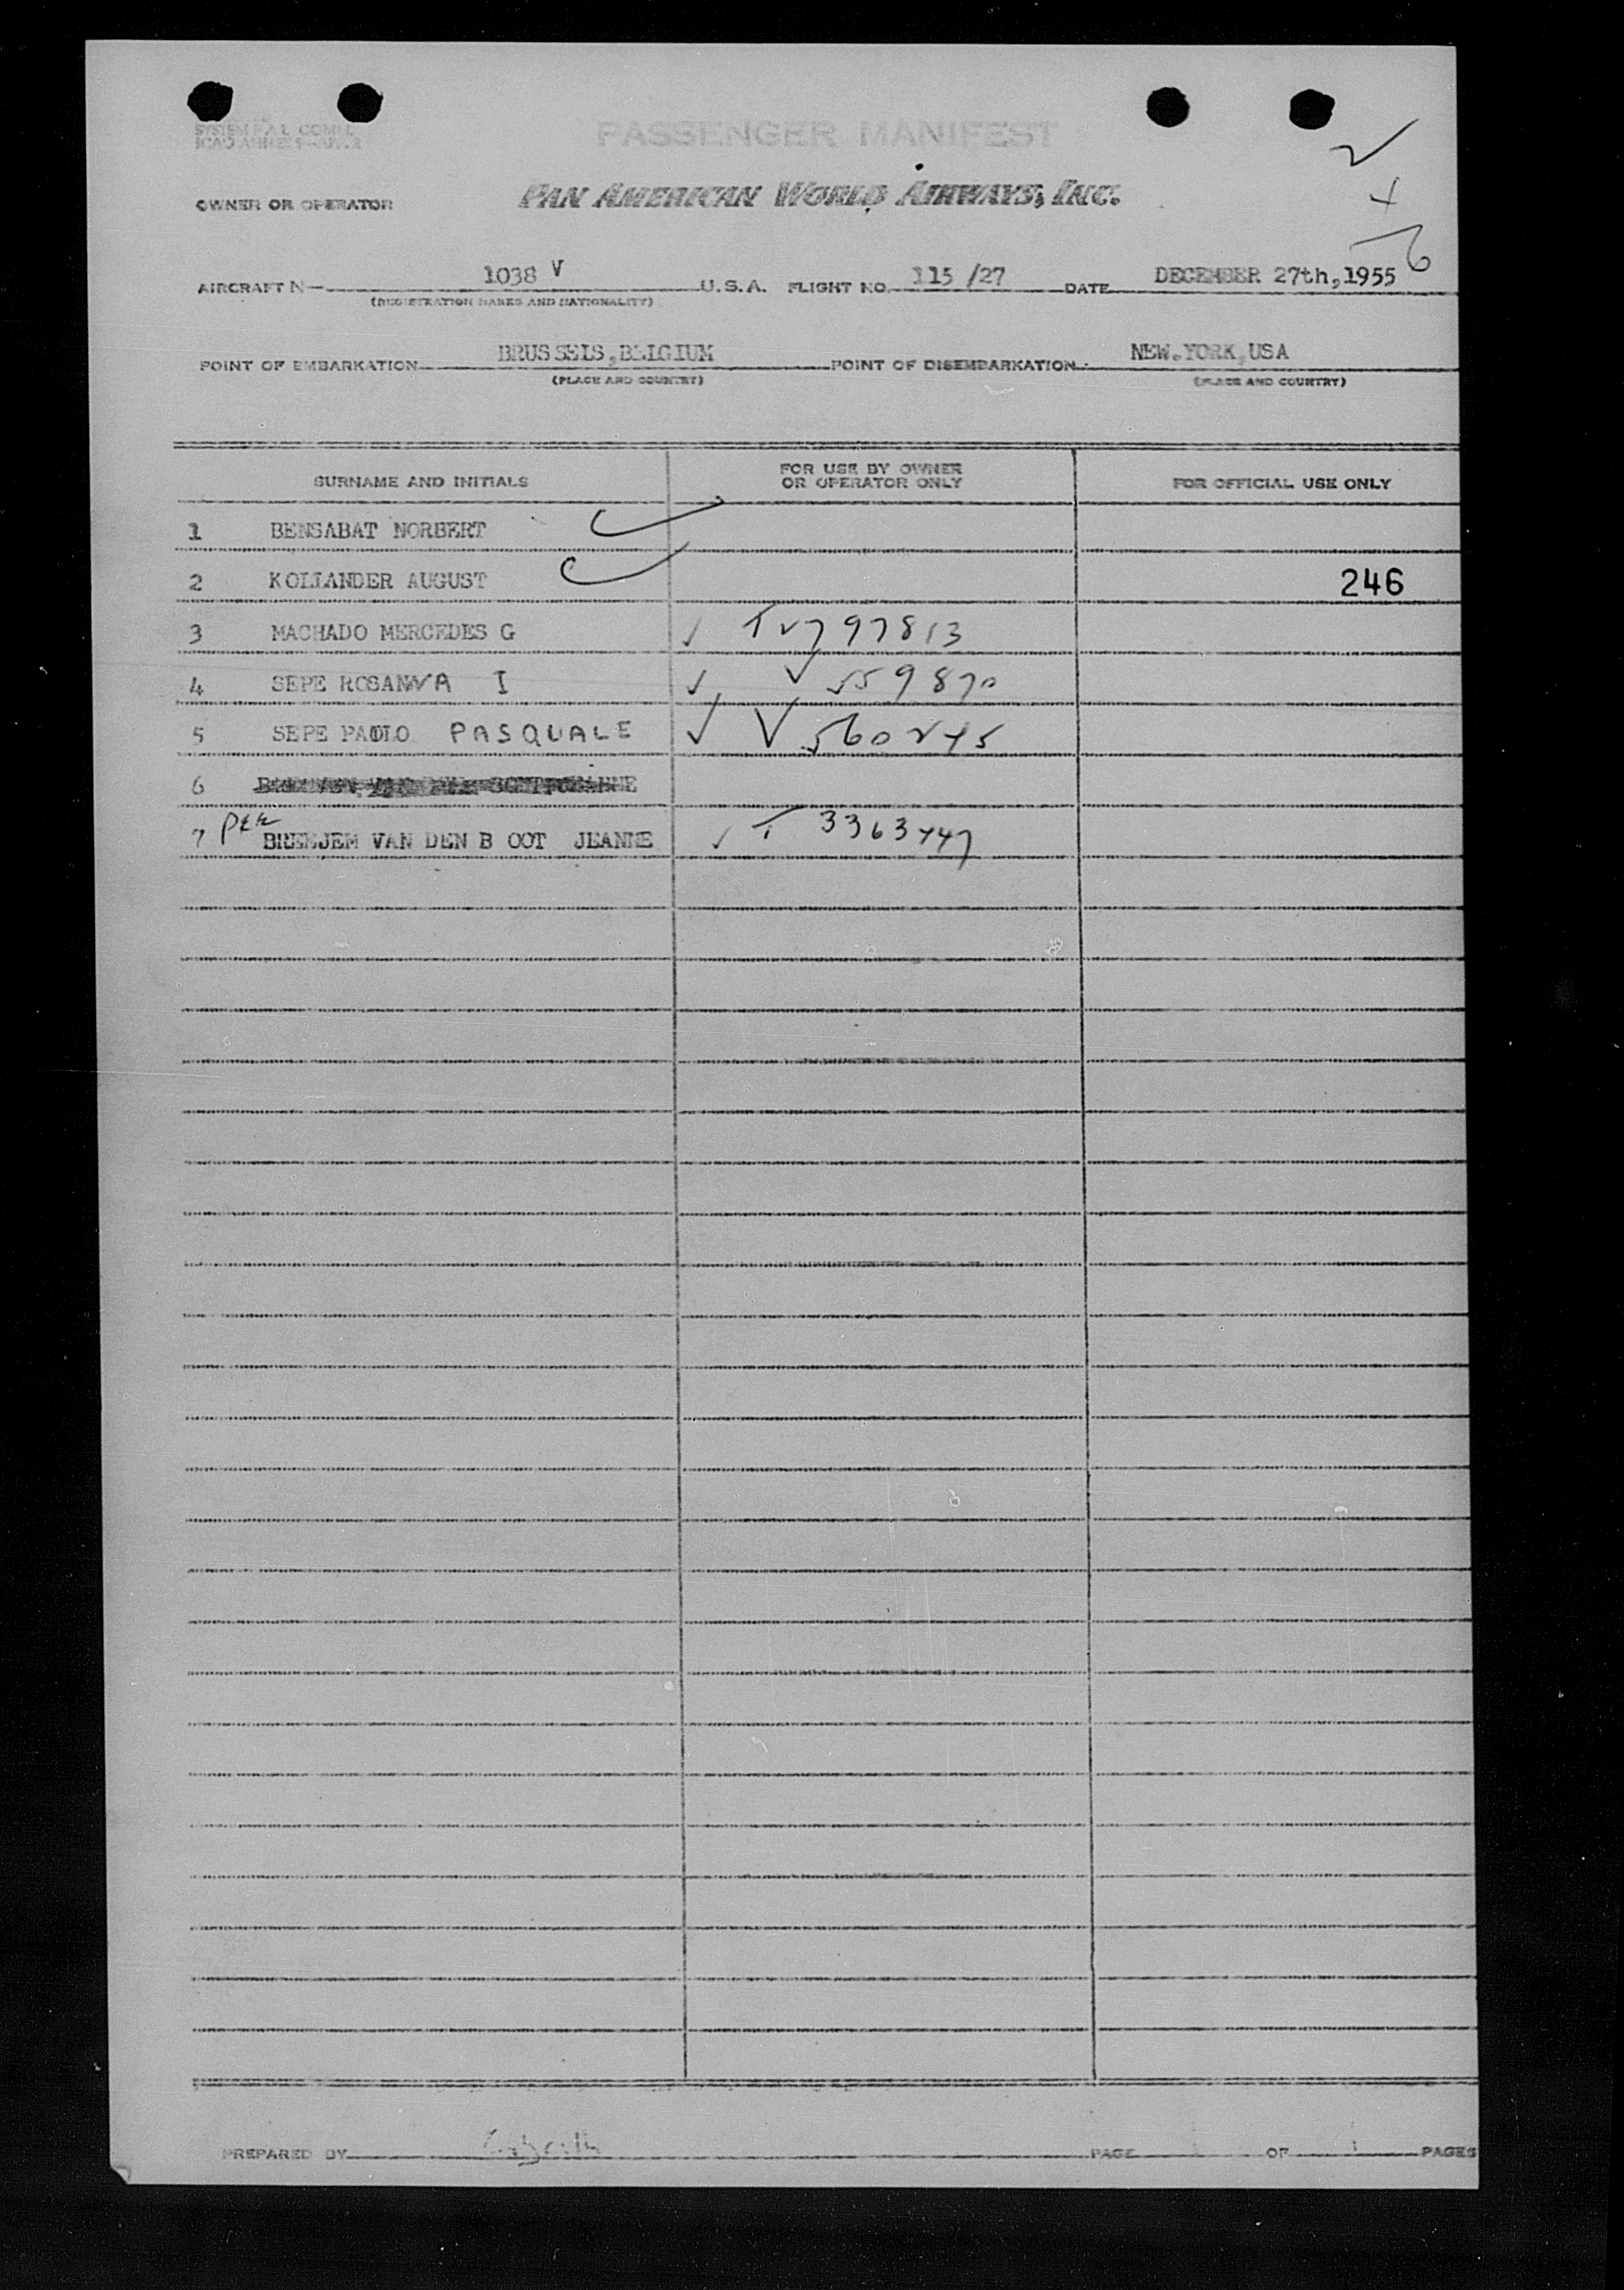 SYSTEM F.A.L. COMM.
ICAO ANNEX 9-APP. 2
PASSENGER MANIFEST
OWNER OR OPERATOR PAN AMERICAN WORLD AIRWAYS, INC.
2
4
6
AIRCRAFT N— 1038 V U.S.A. FLIGHT NO. 115 /27 DATE DECEMBER 27th,1955
(REGISTRATION MARKS AND NATIONALITY)
POINT OF EMBARKATION BRUSSELS,BELGIUM POINT OF DISEMBARKATION NEW.YORK,USA
(PLACE AND COUNTRY) (PLACE AND COUNTRY)
SURNAME AND INITIALS FOR USE BY OWNER OR OPERATOR ONLY FOR OFFICIAL USE ONLY
1 BENSABAT NORBERT
2 KOLLANDER AUGUST 246
3 MACHADO MERCEDES G ✓ T 2797813
4 SEPE ROSANNA I ✓ V 559870
5 SEPE PAOLO PASQUALE ✓ V 560245
6
7 BREEJEM VAN DEN B OOT JEANNE ✓ T 3363747
PREPARED BY PAGE 1 OF 1 PAGES